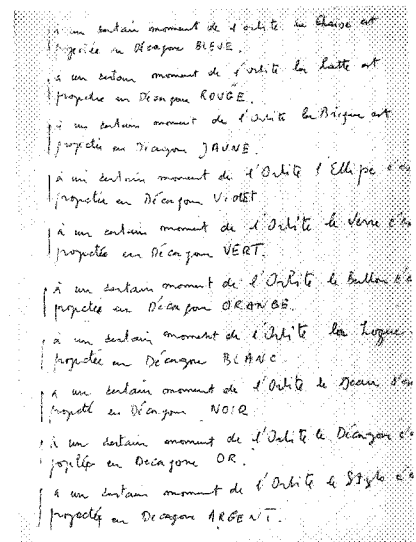 à un certain moment de l'orbite la Chaise est
projectée en Décagone BLEUE.
à un certain moment de l'orbite la Latte est
projectée en Décagone ROUGE.
à un certain moment de l'Orbite la Brique est
projectée en Décagone JAUNE.
à un certain moment de l'Orbite l'Ellipe s'es
projectée en Décagone VioLET
à un certain moment de l'Orbite le Verre s'es
projectée en Décagone VERT.
à un certain moment de l'Orbite le Ballon s'e
projectée en Décagone ORANGE.
à un certain moment de l'Orbite la
projectée en Décagone BLANC
à un certain moment de l'Orbite le s'es
en Décagone NOIR
à un certain moment de l'Orbite le Décagone s'e
en Decagone OR.
à un certain moment de l'Orbite le Stylo s'e
projectée en Decagone ARGENT.